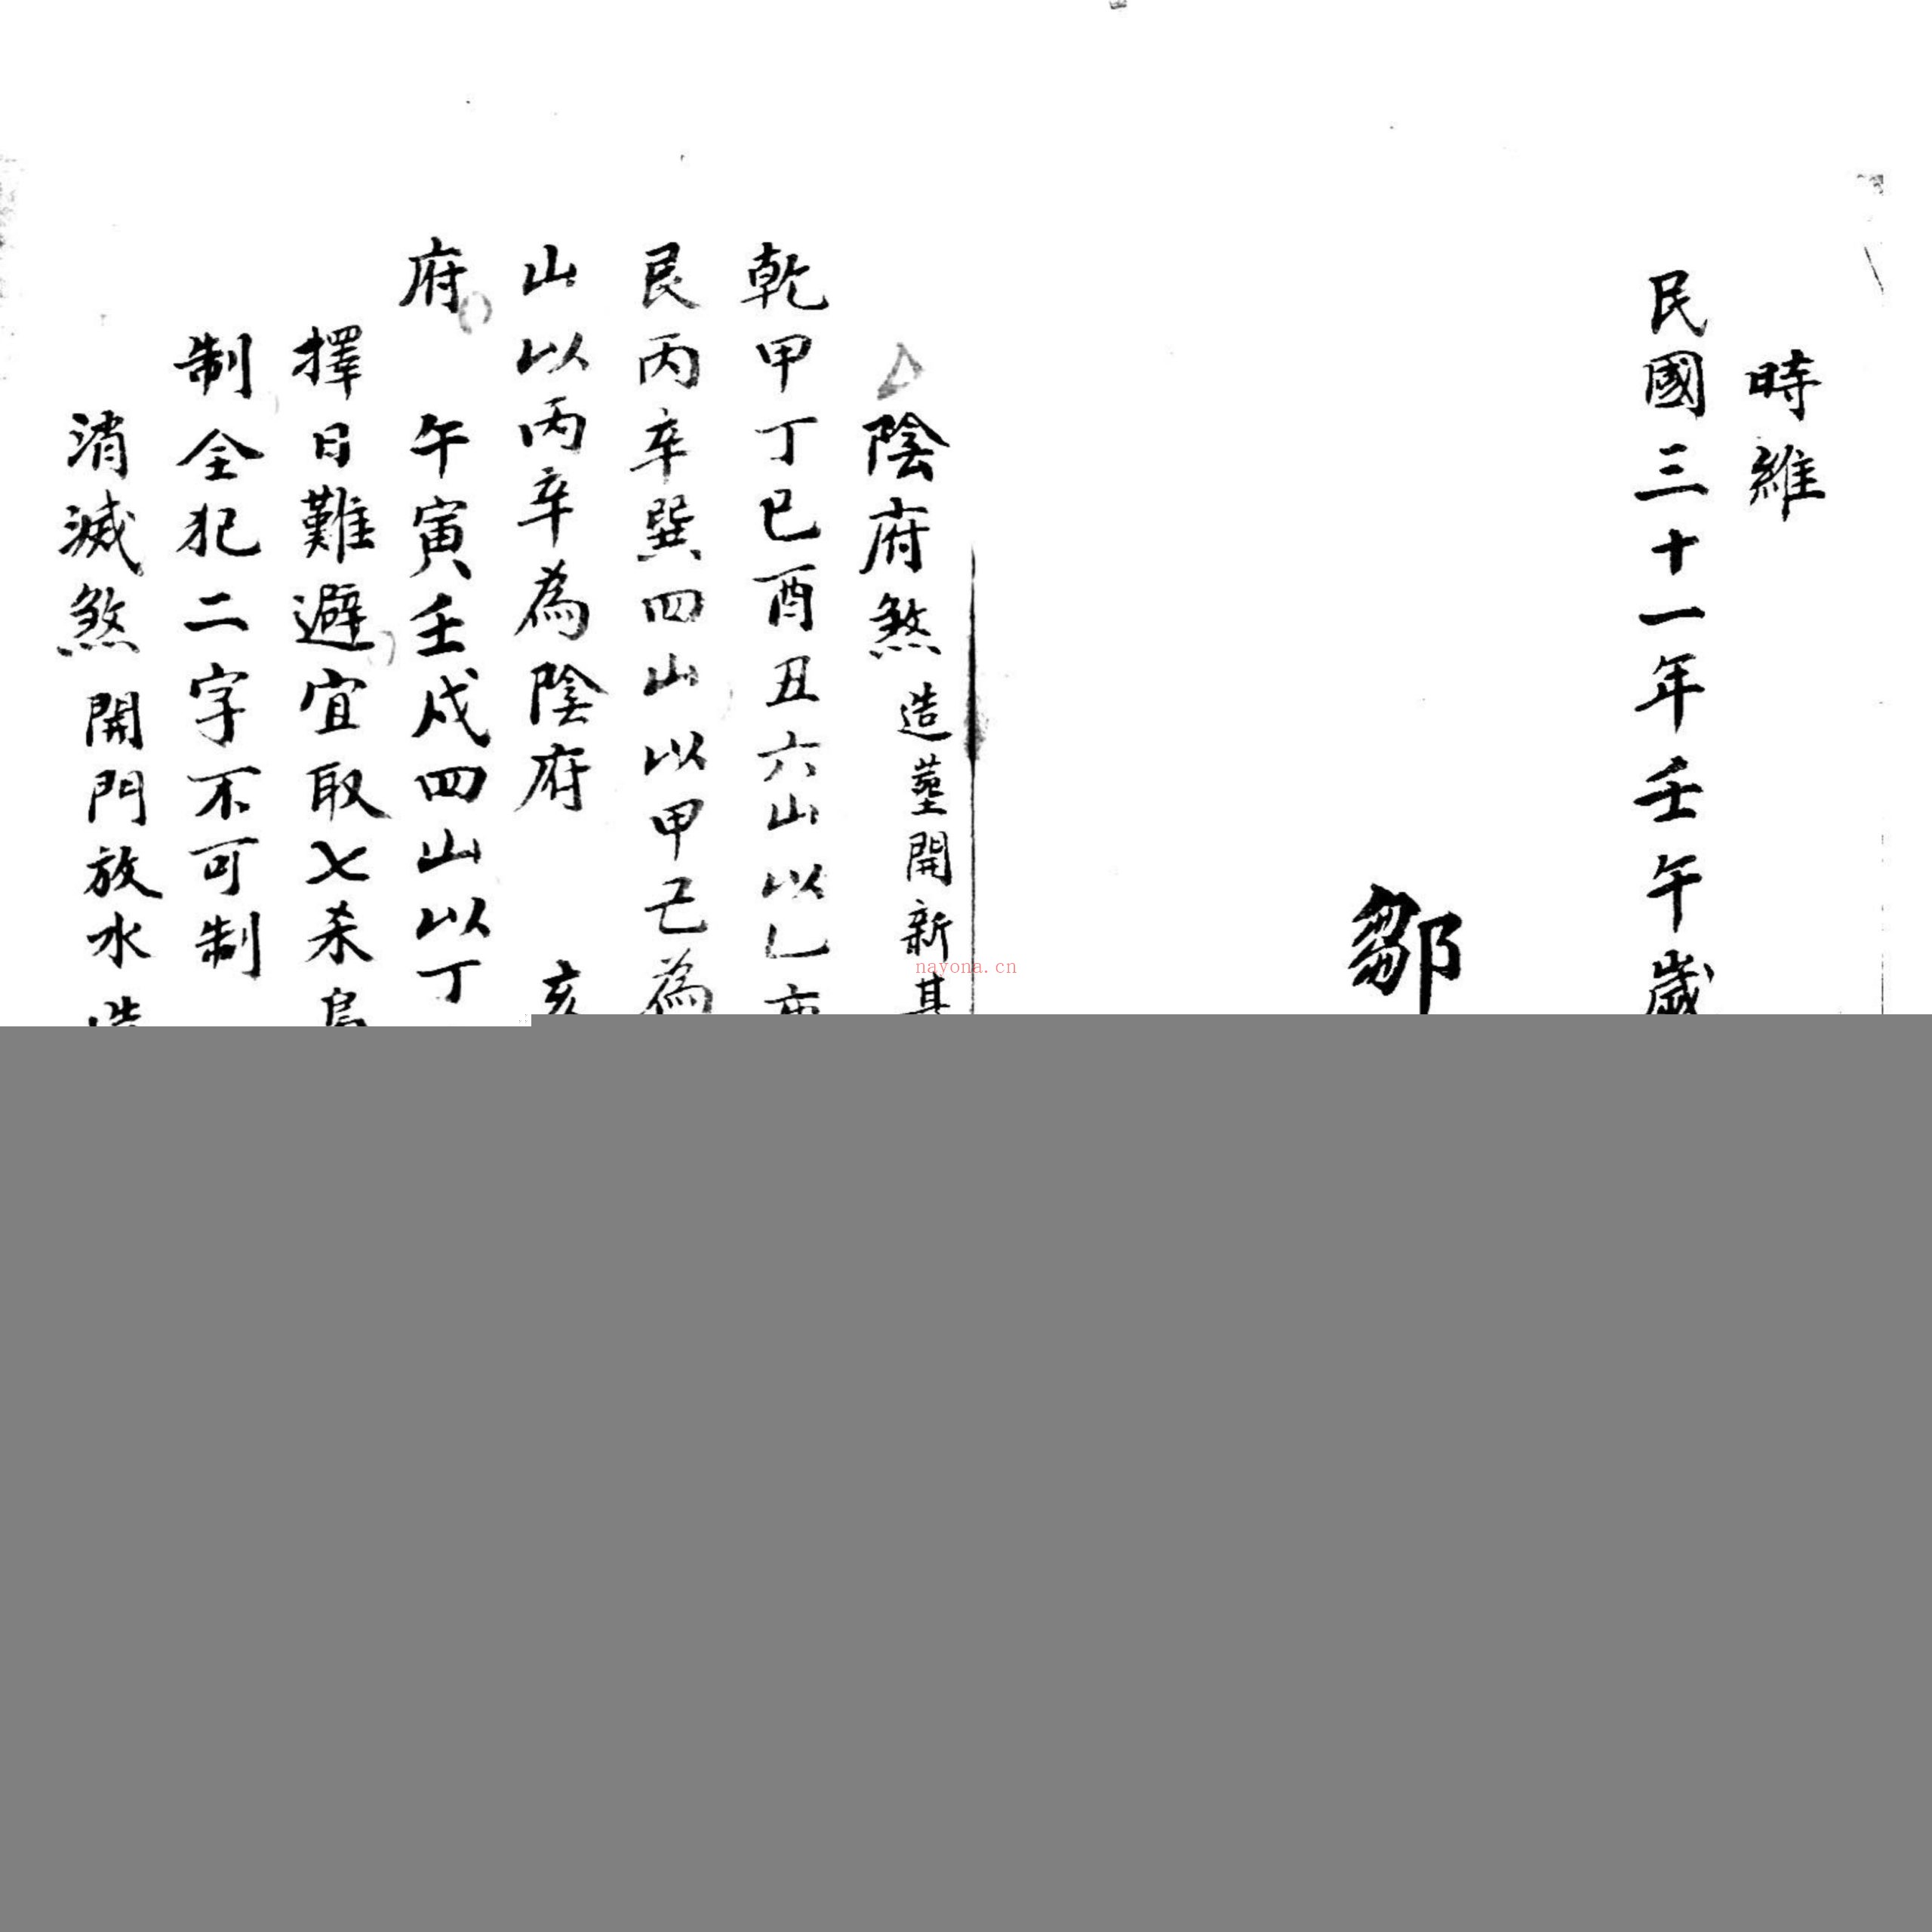 時維
民國三十一年壬午歲
鄒
陰府煞 造塋開新
乾甲丁巳酉丑六山以乙
艮丙辛巽四山以甲己為
山以丙辛為陰府 亥
府 午寅壬戌四山以丁
擇日難避宜取七杀
制全犯二字不可制
消滅煞 開門放水
nayona.cn